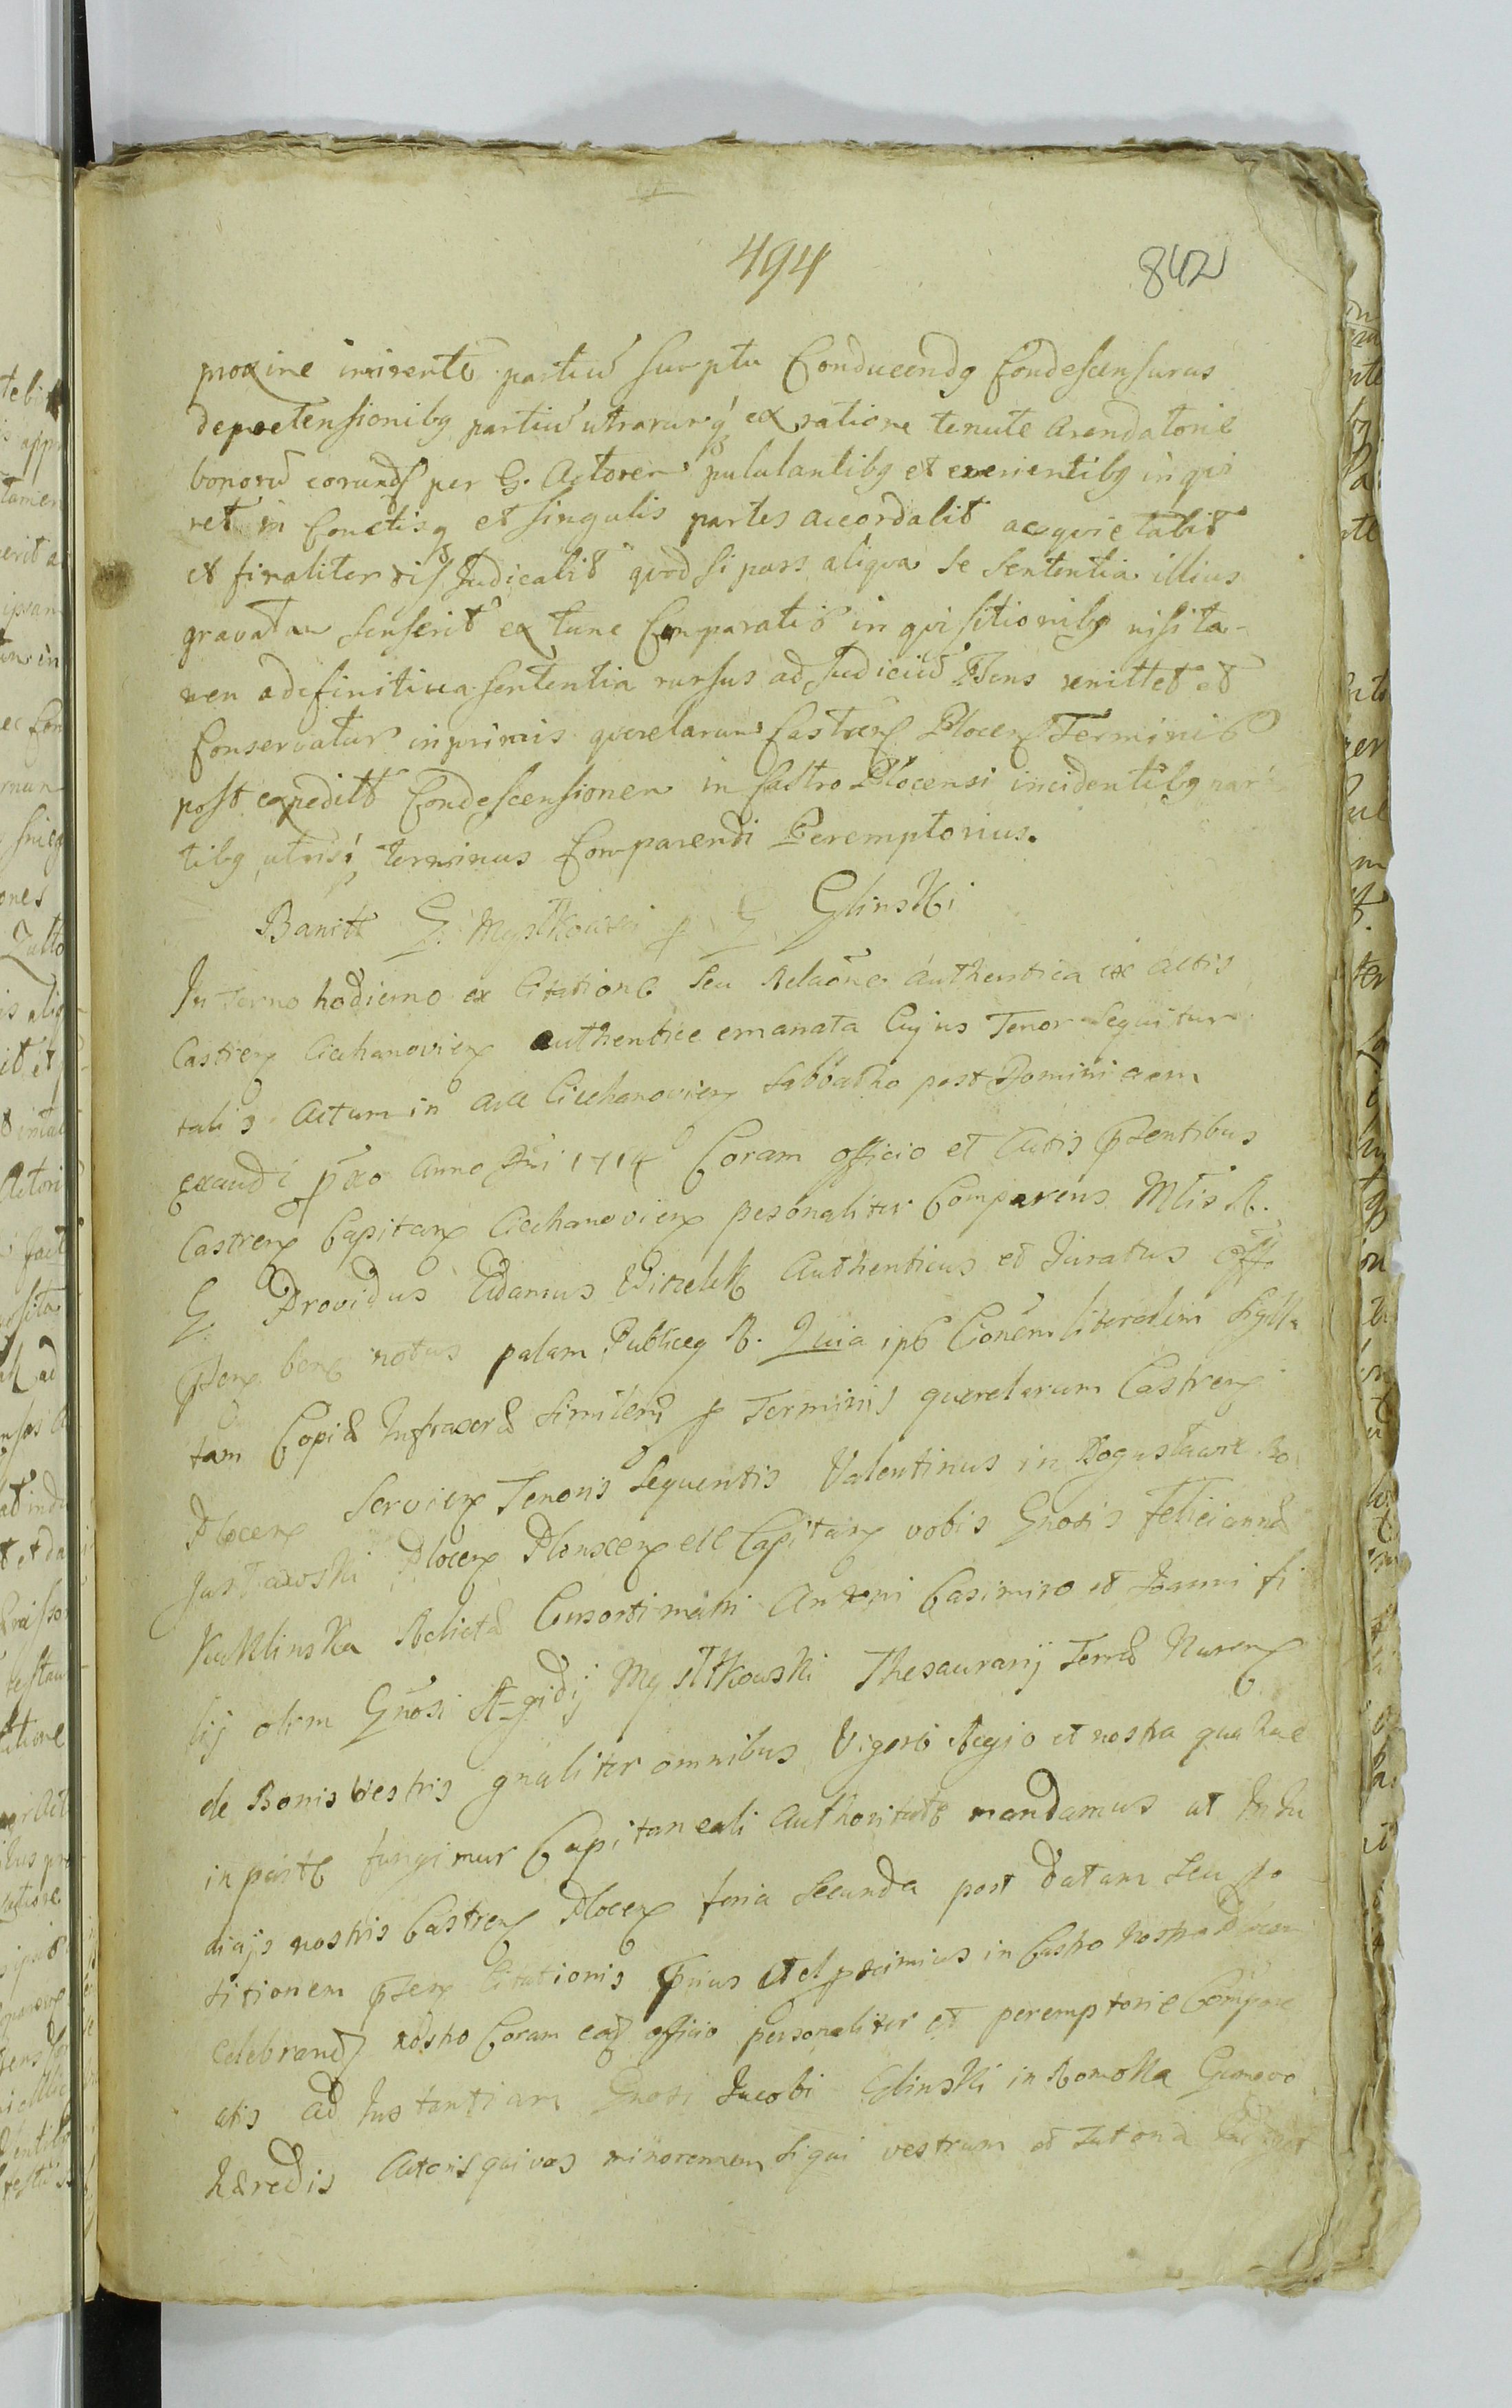 494
842
proxime iminente partiu sumptu Conducendq Condescensurus
de praetensionibq partiu utrarumq ex ratione tenute Arendatorie
bonoru eorund per G. Actorem pululantibq et evenientibq inqui
ret in Cunctisq et singulis partes accordabit acquietabit
et finaliter dis Judicabit quod si pars aliqua se sententia illius
gravatam senserit ex tunc Comparatis inquisitionibq nisi ta-
men a definitiva sententia rursus ad Judiciu Psens remittet et
Conservatur in primis querelarum Castren Plocen Terminis
post expedit Condescensionem in Castro Plocensi incidentibq par
tibq utrisq terminus Comparendi Peremptorius.
Banitt G. Mystkowski p G Glinski
In Termo hodierno ex Citatione seu Relaone authentica ex actis
Castren Ciechanovien authentice emanata Cujus Tenor Sequitur
talis Actum in arce Ciechanovien Sabbatho post Dominicam
exaudi pxo Anno Dni 1714 Coram officio et Actis Psentibus
Castren Capitan Ciechanovien personaliter Comparens Mtis R.
G. Providus Adamus Witzelek Authenticus et Juratus Off
Psen bene notus palam Publiceq R. Quia ipse Cionem literalem Sigilla
tam Copiæ Infrascræ Similem p Terminis querelarum Castren
Plocen Servien Tenoris Sequentis Valentinus in Bogustawic Bo
gustawski Plocen Plonscen etc Capitan vobis Gnosis Felicianæ
Kuklinska Relictæ Consorti matri Antoni Casimiro et Joanni fi
lij olim Gnosi Ægidij Mystkowski Thesaurarij Terræ Nuren
de Bonis vestris gnaliter omnibus Vigore Regio et nostra qua hac
in parte fungimur Capitaneali Authoritate mandamus ut In Ju
dicijs nostris Castren Plocen feria Secunda post datam seu po
sitionem Psen Citationis Prius et proximius in Castro Nostro Plocen
Celebrand nostro Coram eod officio personaliter et peremptorie Compare
atis ad Instantiam Gnosi Jacobi Glinski in Romoka Gumowo
hæredis Actoris qui vos minorennem siqui vestrum et Tutoria